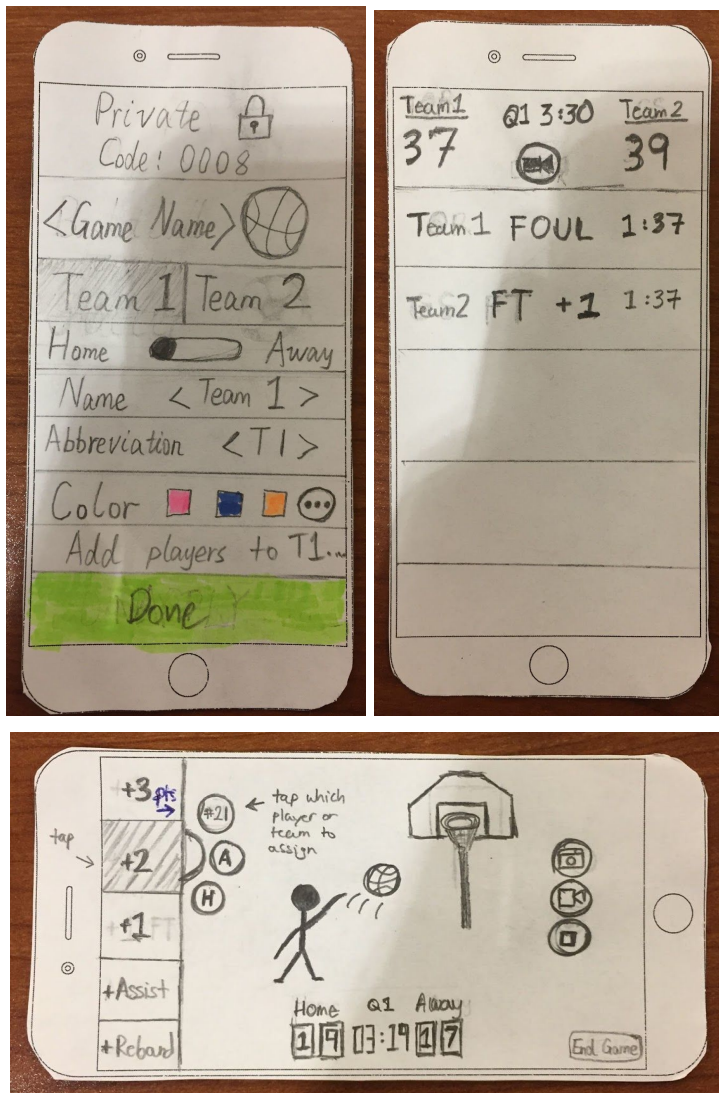 Private
Code: 0008
<Game Name>
Team 1 Team 2
Home Away
Name < Team 1 >
Abbreviation < T1 >
Color
Add players to T1...
Done
Team1 Q1 3:30 Team 2
37 39
Team 1 FOUL 1:37
Team2 FT +1 1:37
+3 pts
tap
+2
+1 FT
+Assist
+Reboard
#21
A
H
tap which
player or
team to
assign
Home Q1 Away
19 03:19 17
End Game